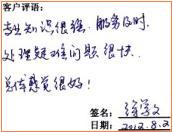 客户评语:
专业知识很强、服务及时、
处理疑难问题很快.
总体感觉很好!
签名: 徐学文
日期: 2012.8.2